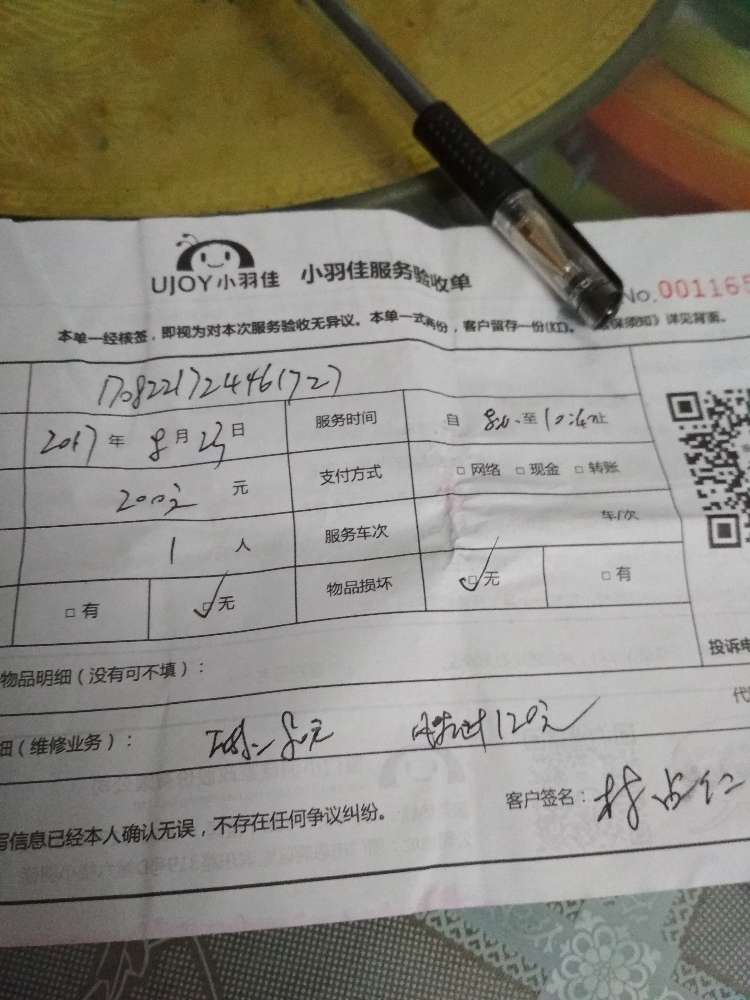 UJOY小羽佳 小羽佳服务验收单
No.001165
本单一经核签，即视为对本次服务验收无异议。本单一式两份，客户留存一份(红)。保须知》详见背面。
1708221724461727
2017年8月23日 服务时间 自 至 10:40止
200元 元 支付方式 □网络 □现金 □转账
1 人 服务车次 车/次
□有 ☑无 物品损坏 ☑无 □有
投诉电
物品明细（没有可不填）：
细（维修业务）： 80元 120元
写信息已经本人确认无误，不存在任何争议纠纷。 客户签名：